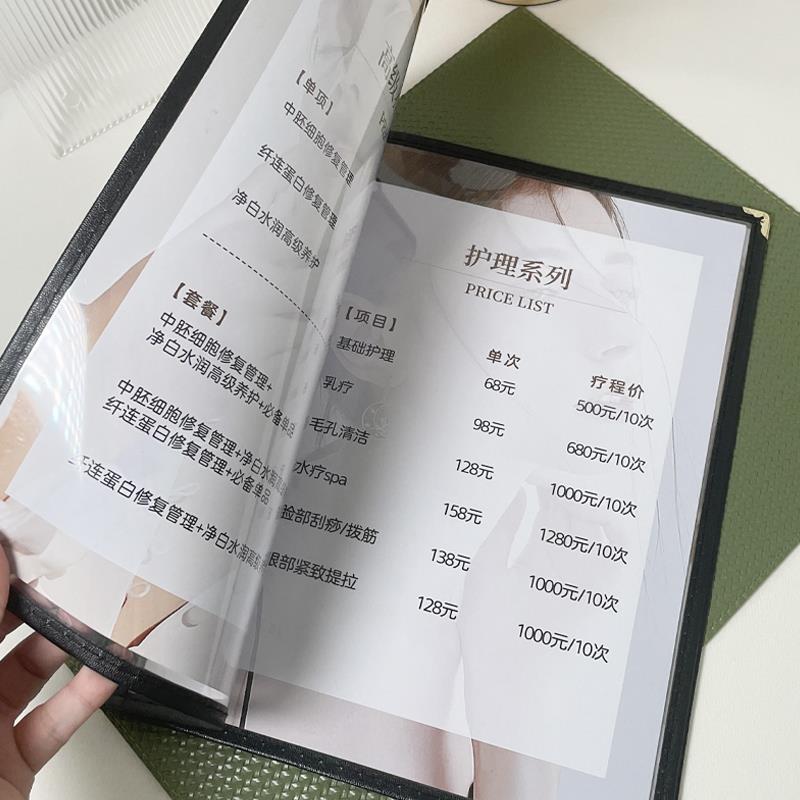 高级
【单项】
中胚细胞修复管理
纤连蛋白修复管理
净白水润高级养护
【套餐】
中胚细胞修复管理+
净白水润高级养护+必备单品
中胚细胞修复管理+净白水润
纤连蛋白修复管理+必备单品
纤连蛋白修复管理+净白水润高级
护理系列
PRICE LIST
【项目】 单次 疗程价
基础护理 68元 500元/10次
乳疗 98元 680元/10次
毛孔清洁 128元 1000元/10次
水疗spa 158元 1280元/10次
脸部刮痧/拨筋 138元 1000元/10次
眼部紧致提拉 128元 1000元/10次